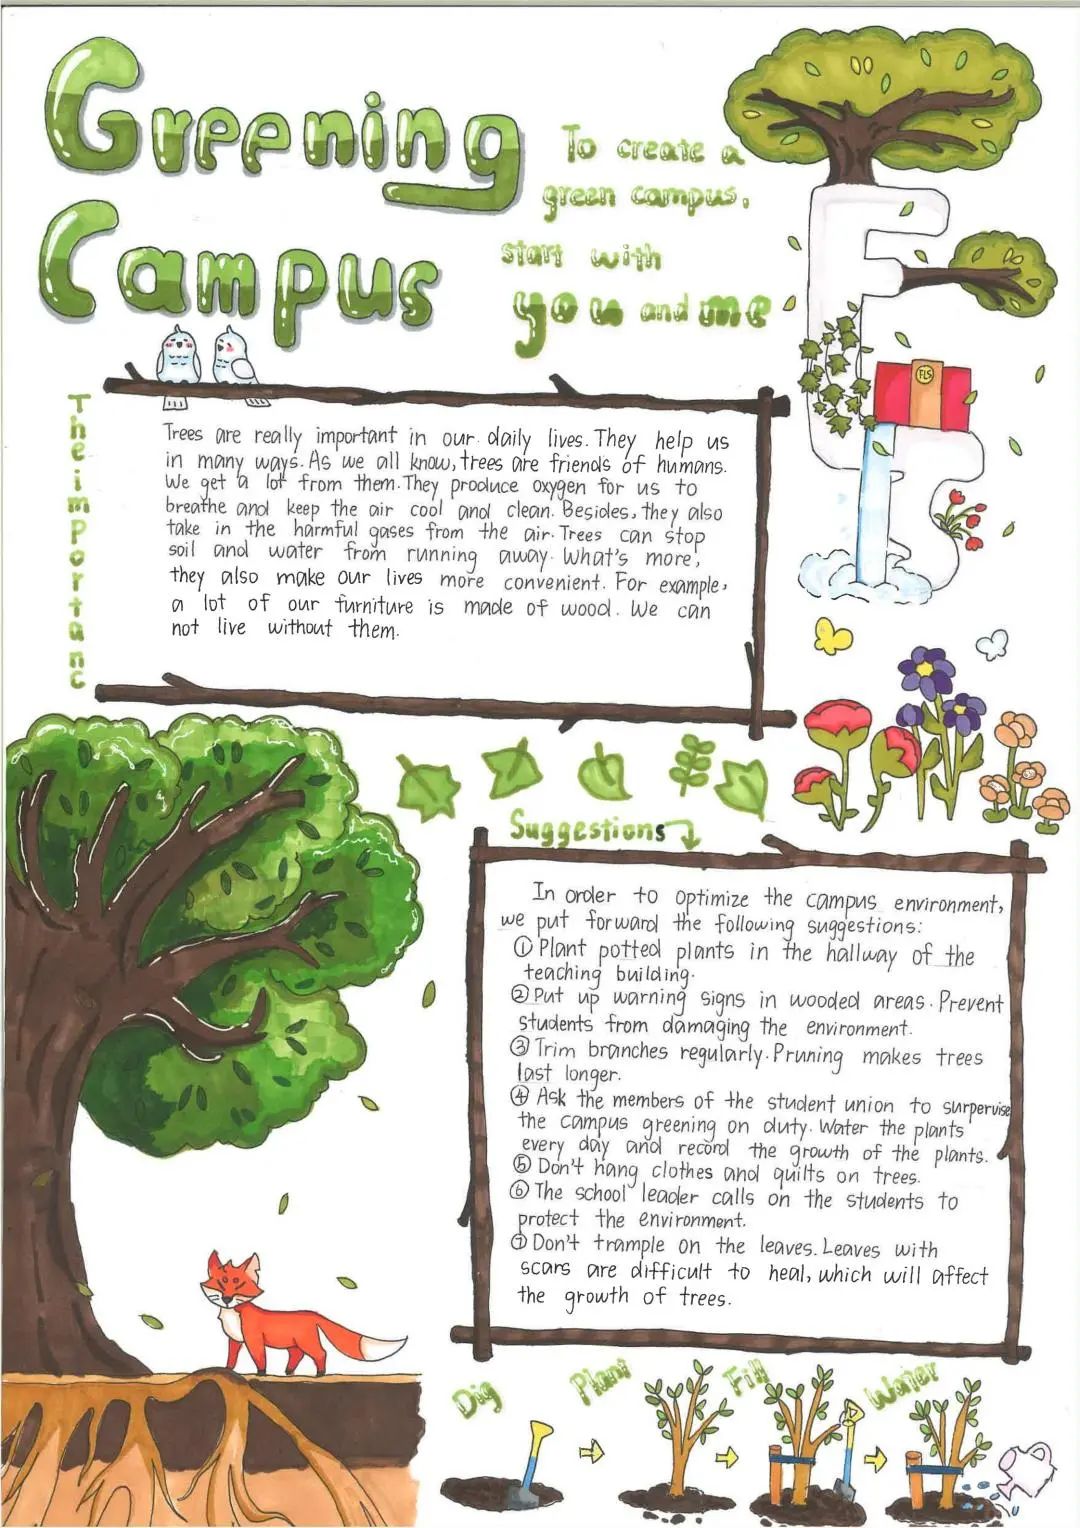 Greening
Campus
To create a
green campus,
start with
you and me
FLS
The importanc
Trees are really important in our daily lives. They help us
in many ways. As we all know, trees are friends of humans.
We get a lot from them. They produce oxygen for us to
breathe and keep the air cool and clean. Besides, they also
take in the harmful gases from the air. Trees can stop
soil and water from running away. What's more,
they also make our lives more convenient. For example,
a lot of our furniture is made of wood. We can
not live without them.
Suggestions
In order to optimize the campus environment,
we put forward the following suggestions:
① Plant potted plants in the hallway of the
teaching building.
② Put up warning signs in wooded areas. Prevent
students from damaging the environment.
③ Trim branches regularly. Pruning makes trees
last longer.
④ Ask the members of the student union to surpervise
the campus greening on duty. Water the plants
every day and record the growth of the plants.
⑤ Don't hang clothes and quilts on trees.
⑥ The school leader calls on the students to
protect the environment.
⑦ Don't trample on the leaves. Leaves with
scars are difficult to heal, which will affect
the growth of trees.
Dig Plant Fill Water